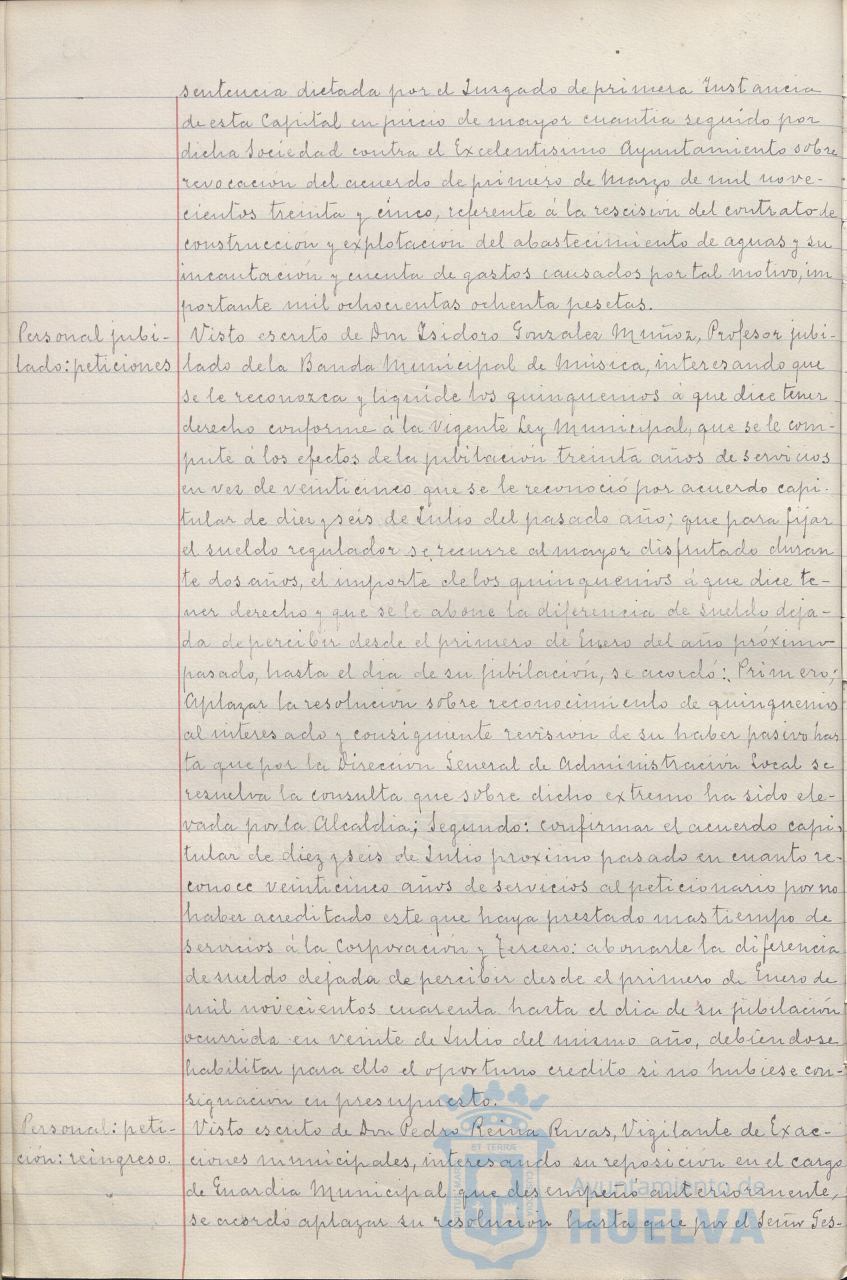 sentencia dictada por el Juzgado de primera Instancia
de esta Capital en juicio de mayor cuantia seguido por
dicha Sociedad contra el Excelentisimo Ayuntamiento sobre
revocación del acuerdo de primero de Marzo de mil nove-
cientos treinta y cinco, referente á la rescision del contrato de
construcción y explotación del abastecimiento de aguas y su
incautación y cuenta de gastos causados por tal motivo, im
portante mil ochocientas ochenta pesetas.
Personal jubi-
lado: peticiones
Visto escrito de Don Isidoro Gonzalez Muñoz, Profesor jubi-
lado de la Banda Municipal de Música, interesando que
se le reconozca y liquide los quinquenios á que dice tener
derecho conforme á la Vigente Ley Municipal, que se le com-
pute á los efectos de la jubilación treinta años de servicios
en vez de veinticinco que se le reconoció por acuerdo capi-
tular de diez y seis de Julio del pasado año; que para fijar
el sueldo regulador se recurre al mayor disfrutado duran
te dos años, el importe de los quinquenios á que dice te-
ner derecho y que se le abone la diferencia de sueldo deja-
da de percibir desde el primero de Enero del año próximo
pasado, hasta el dia de su jubilación, se acordó: Primero;
Aplazar la resolución sobre reconocimiento de quinquenios
al interesado y consiguiente revision de su haber pasivo has
ta que por la Dirección General de Administración Local se
resuelva la consulta que sobre dicho extremo ha sido ele-
vada por la Alcaldia; Segundo: confirmar el acuerdo capi-
tular de diez y seis de Julio proximo pasado en cuanto re-
conoce veinticinco años de servicios al peticionario por no
haber acreditado este que haya prestado mas tiempo de
servicios á la Corporación y Tercero: abonarle la diferencia
de sueldo dejada de percibir desde el primero de Enero de
mil novecientos cuarenta hasta el dia de su jubilación
ocurrida en veinte de Julio del mismo año, debiendose
habilitar para ello el oportuno credito si no hubiese con-
signación en presupuesto.
Personal: peti-
ción: reingreso.
Visto escrito de Don Pedro Reina Rivas, Vigilante de Exac-
ciones municipales, interesando su reposición en el cargo
de Guardia Municipal que desempeñó anteriormente,
se acordo aplazar su resolución hasta que por el Señor Ges-
ET TERRAE
Ayuntamiento de
HUELVA